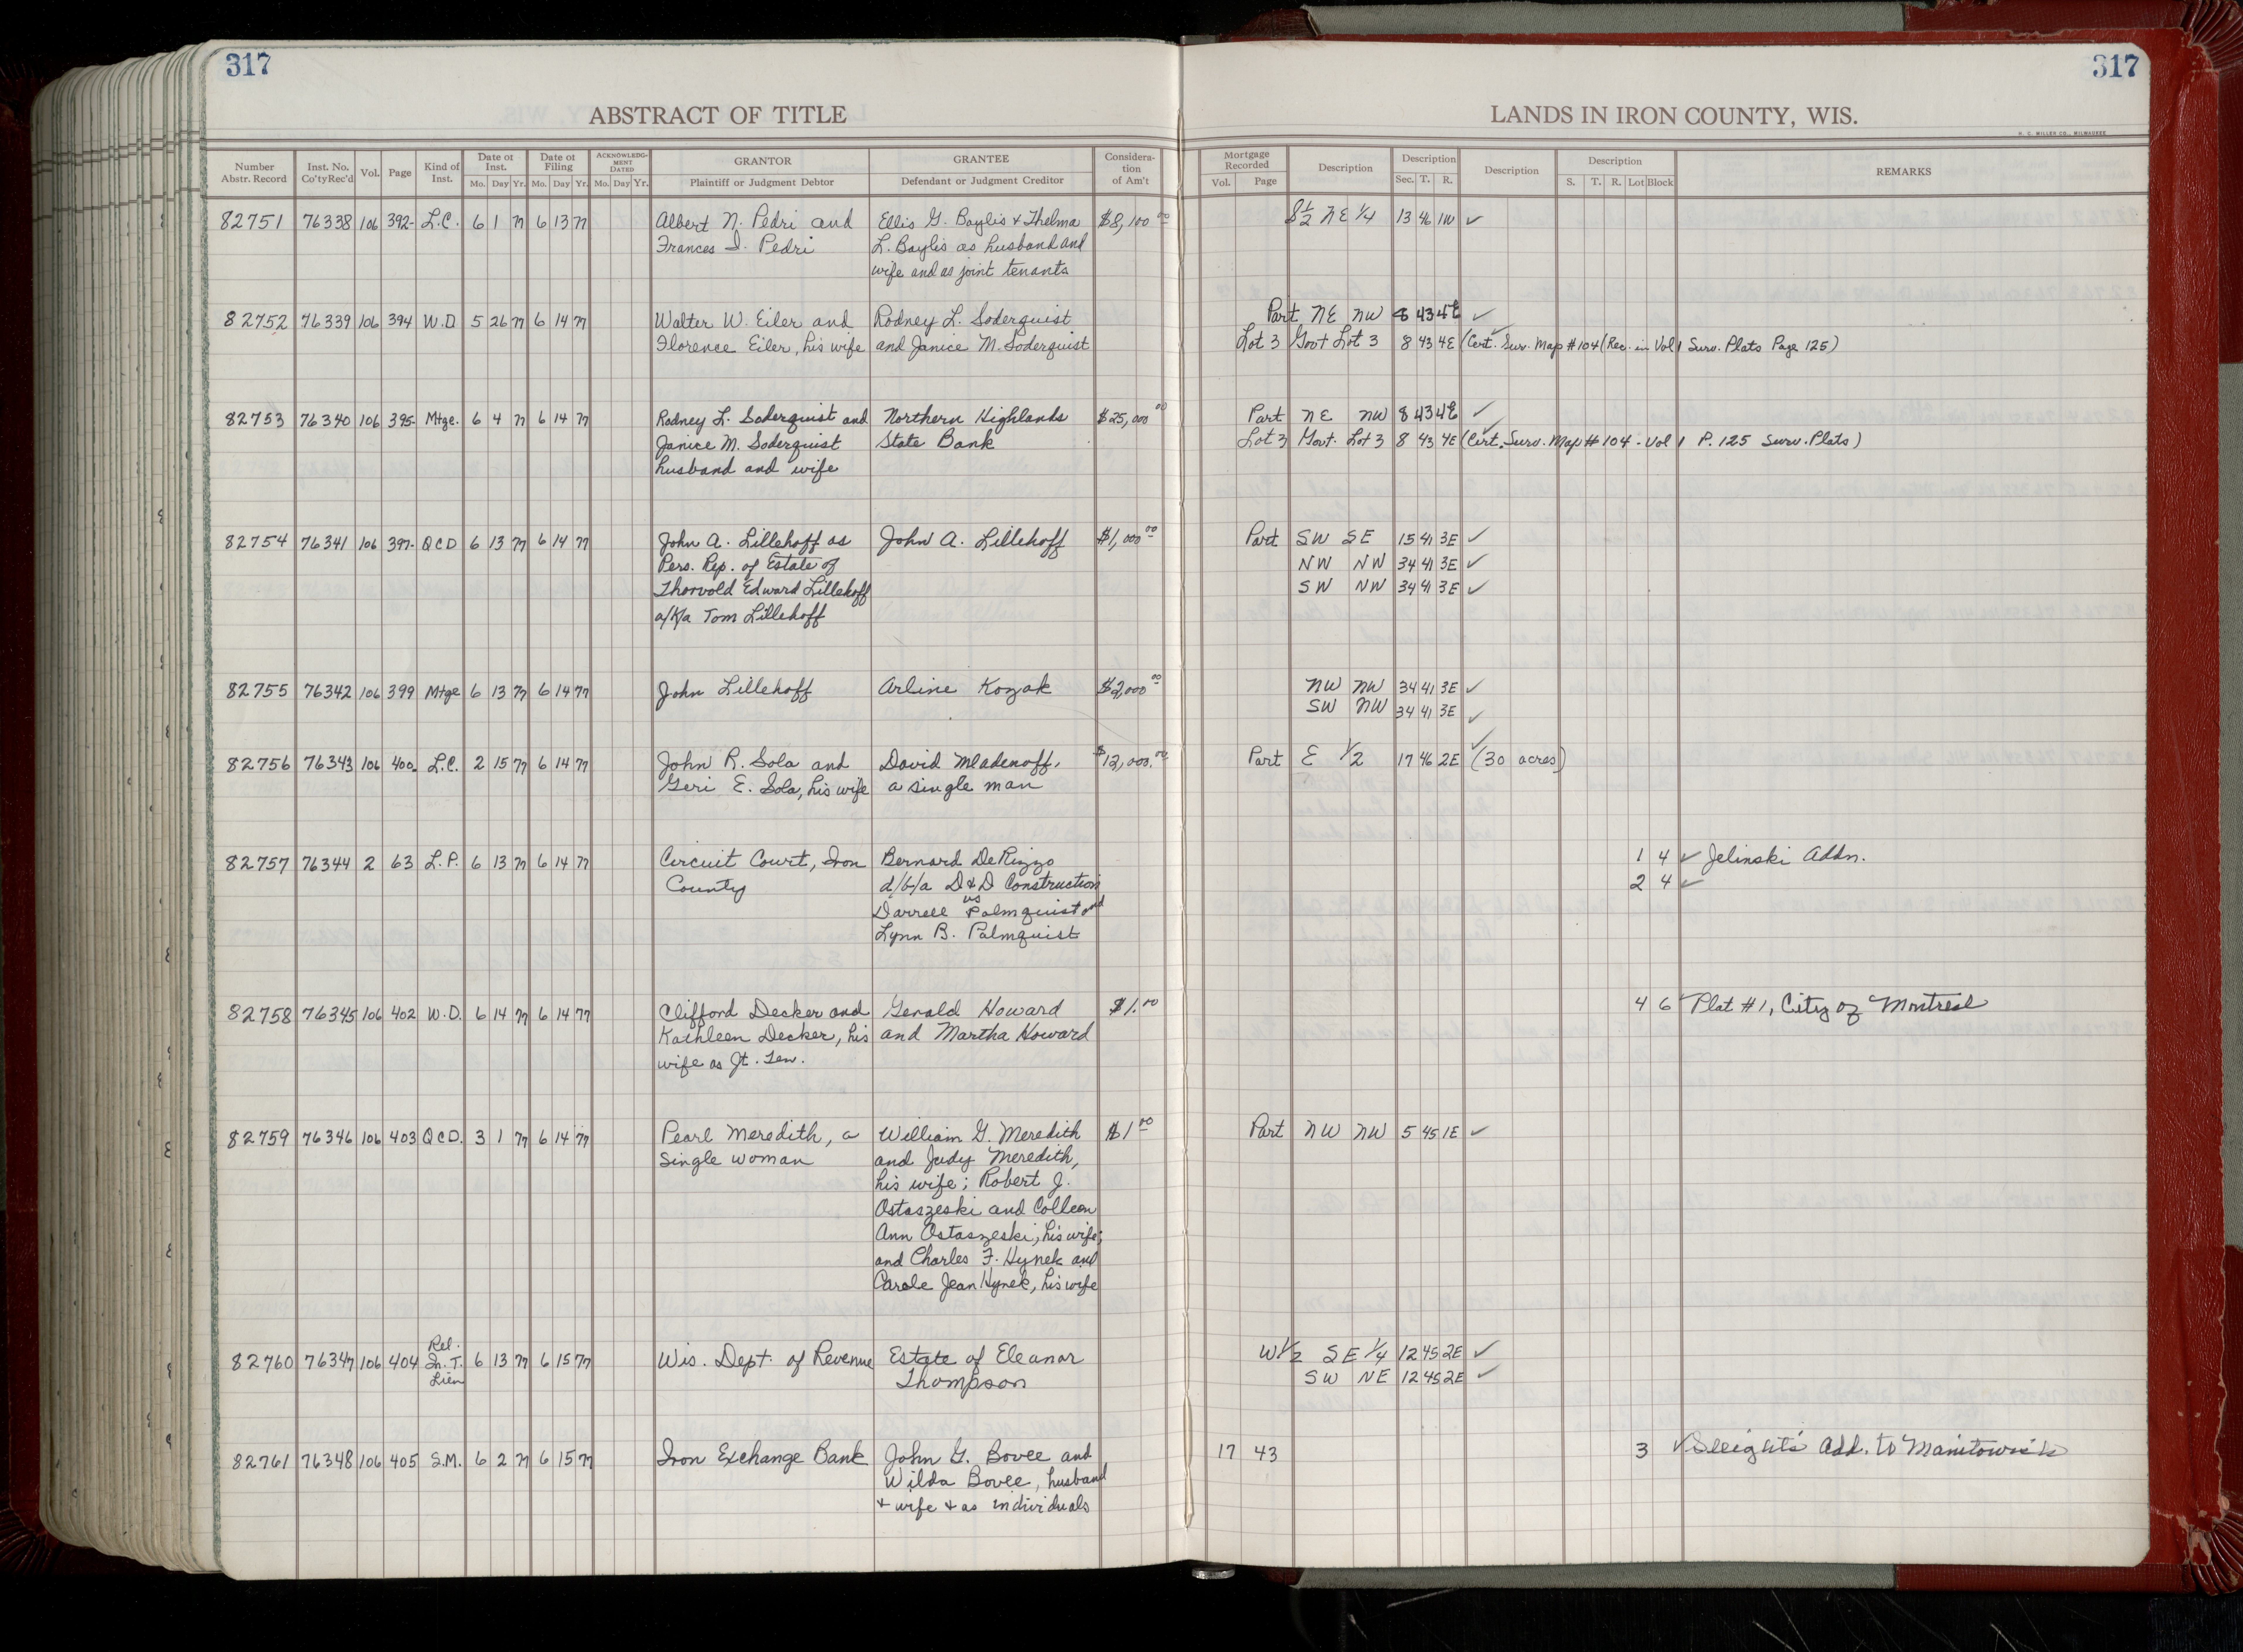 317
317
ABSTRACT OF TITLE
LANDS IN IRON COUNTY, WIS.
H. C. MILLER CO., MILWAUKEE
Number Abstr. Record | Inst. No. Co'ty Rec'd | Vol. | Page | Kind of Inst. | Date of Inst. Mo. Day Yr. | Date of Filing Mo. Day Yr. | ACKNOWLEDGMENT DATED Mo. Day Yr. | GRANTOR Plaintiff or Judgment Debtor | GRANTEE Defendant or Judgment Creditor | Consideration of Am't | Mortgage Recorded Vol. Page | Description | Description Sec. T. R. | Description | Description S. T. R. Lot Block | REMARKS
82751 76338 106 392- L.C. 6 1 77 6 13 77 Albert N. Pedri and Ellis G. Baylis & Thelma $8,100 00 S 1/2 NE 1/4 13 46 1W ✓
Frances I. Pedri L. Baylis as husband and
wife and as joint tenants
82752 76339 106 394 W.D 5 26 77 6 14 77 Walter W. Eiler and Rodney L. Soderquist Part NE NW 8 43 4E ✓
Florence Eiler, his wife and Janice M. Soderquist Lot 3 Govt Lot 3 8 43 4E (Cert. Surv. Map #104 (Rec. in Vol 1 Surv. Plats Page 125)
82753 76340 106 395- Mtge. 6 4 77 6 14 77 Rodney L. Soderquist and Northern Highlands $25,000 00 Part NE NW 8 43 4E ✓
Janice M. Soderquist State Bank Lot 3 Govt. Lot 3 8 43 4E (Cert. Surv. Map # 104 - Vol 1 P. 125 Surv. Plats)
husband and wife
82754 76341 106 397- QCD 6 13 77 6 14 77 John A. Lillehoff as John A. Lillehoff $1,000 00 Part SW SE 15 41 3E ✓
Pers. Rep. of Estate of NW NW 34 41 3E ✓
Thorvold Edward Lillehoff SW NW 34 41 3E ✓
a/k/a Tom Lillehoff
82755 76342 106 399 Mtge 6 13 77 6 14 77 John Lillehoff Arline Kozak $2,000 00 NW NW 34 41 3E ✓
SW NW 34 41 3E ✓
82756 76343 106 400- L.C. 2 15 77 6 14 77 John R. Sola and David Mladenoff, $12,000.00 Part E 1/2 17 46 2E ✓ (30 acres)
Geri E. Sola, his wife a single man
82757 76344 2 63 L.P. 6 13 77 6 14 77 Circuit Court, Iron Bernard DeRizzo 1 4 ✓ Jelinski Addn.
County d/b/a D & D Construction 2 4 ✓
vs
Darrell Palmquist and
Lynn B. Palmquist
82758 76345 106 402 W.D. 6 14 77 6 14 77 Clifford Decker and Gerald Howard $1.00 4 6 ✓ Plat #1, City of Montreal
Kathleen Decker, his and Martha Howard
wife as Jt. Ten.
82759 76346 106 403 QCD. 3 1 77 6 14 77 Pearl Meredith, a William G. Meredith $1 00 Part NW NW 5 45 1E ✓
single woman and Judy Meredith,
his wife; Robert J.
Ostaszeski and Colleen
Ann Ostaszeski, his wife;
and Charles F. Hynek and
Carole Jean Hynek, his wife
Rel.
82760 76347 106 404 In. T. 6 13 77 6 15 77 Wis. Dept. of Revenue Estate of Eleanor W 1/2 SE 1/4 12 45 2E ✓
Lien Thompson SW NE 12 45 2E ✓
82761 76348 106 405 S.M. 6 2 77 6 15 77 Iron Exchange Bank John G. Bovee and 17 43 3 ✓ Sleight's Add. to Manitowish
Wilda Bovee, husband
& wife & as individuals